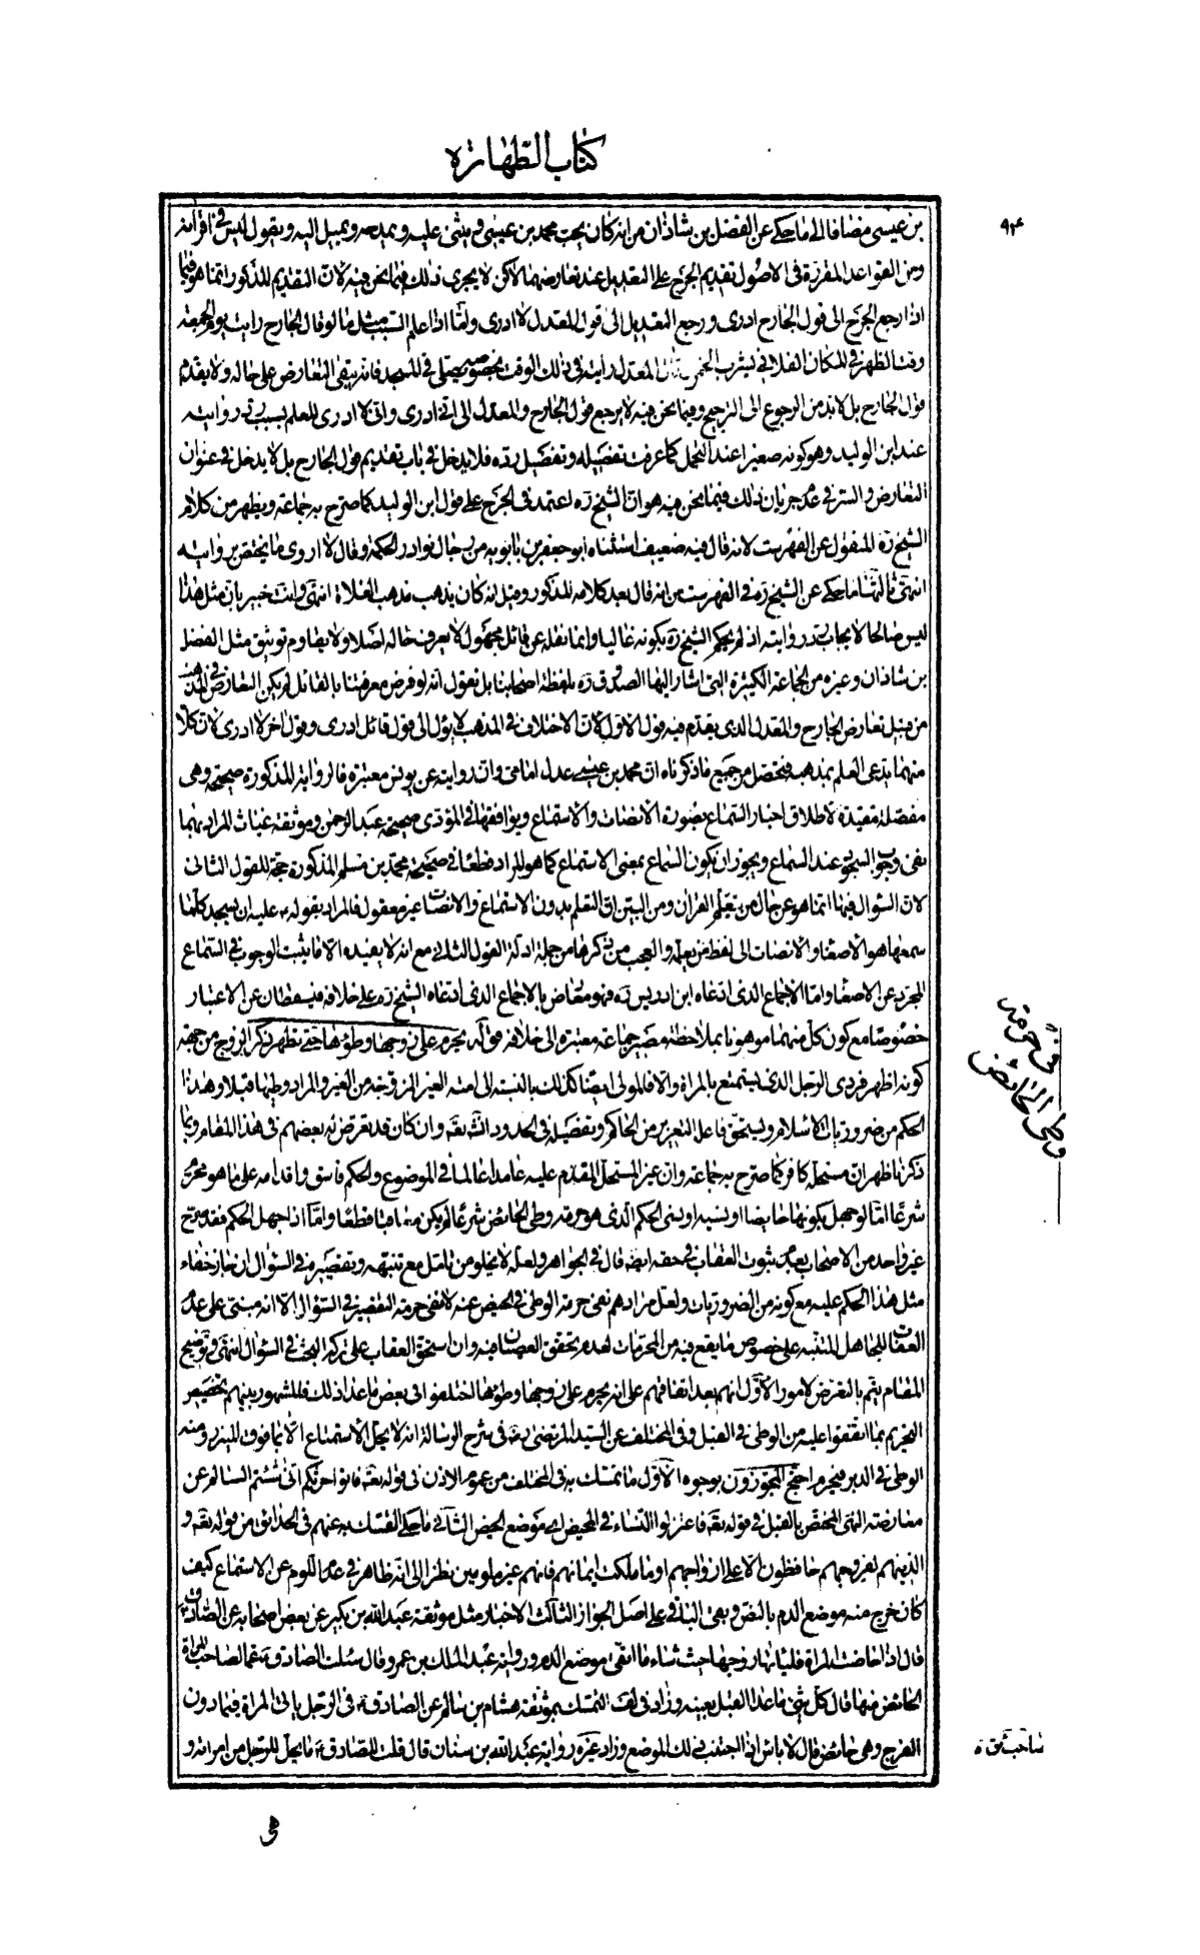 كتاب الطهارة
٩٤
بن عيسى مضافا الى ما حكى عن الفضل بن شاذان من انه كان يحب محمد بن عيسى ويثنى عليه ويمدحه ويميل اليه ويقول ليس فى اقرانه
ومن القواعد المقررة فى الاصول تقديم الجرح على التعديل عند تعارضهما لكن لا يجرى ذلك فيما نحن فيه لان التقديم المذكور انما هو فيما
اذا رجع الجرح الى قول الجارح ادرى ورجع التعديل الى قول المعدل لا ادرى وامّا اذا علم السبب مثل ما لو قال الجارح رايت يوم الجمعة
وقت الظهر فى المكان الفلانى يشرب الخمر وقال المعدل رايته فى ذلك الوقت بخصوصه يصلى فى المسجد فانه يبقى التعارض على حاله ولا يقدم
قول الجارح بل لا بد من الرجوع الى الترجيح وفيما نحن فيه لا يرجع قول الجارح والمعدل الى انى ادرى وانى لا ادرى للعلم بسبب رد روايته
عند ابن الوليد وهو كونه صغيرا عند التحمل كما عرفت تفصيله وتفصيل رده فلا يدخل فى باب تقديم قول الجارح بل لا يدخل فى عنوان
التعارض والسر فى عدم جريان ذلك فيما نحن فيه هو ان الشيخ ره اعتمد فى الجرح على قول ابن الوليد كما صرح به جماعة ويظهر من كلام
الشيخ ره المنقول عن الفهرست لانه قال فيه ضعيف استثناه ابو جعفر بن بابويه من رجال نوادر الحكمة وقال لا اروى ما يختص بروايته
انتهى ثالثها ما حكى عن الشيخ ره فى الفهرست من انه قال بعد كلامه المذكور وقيل انه كان يذهب مذهب الغلاة انتهى وانت خبير بان مثل هذا
ليس صالحا لايجاب رد روايته اذ لم يحكم الشيخ ره بكونه غاليا وانما نقله عن قائل مجهول لا يعرف حاله اصلا ولا يقاوم توثيق مثل الفضل
بن شاذان وغيره من الجماعة الكثيرة التى اشار اليها الصدوق ره بلفظة اصحابنا بل نقول انه لو فرض معرفتنا بالقائل لم يكن التعارض فى المذهب
من قبيل تعارض الجارح والمعدل الذى يقدم فيه قول الاول لان الاختلاف فى المذهب لا يؤل الى قول قائل ادرى وقول اخر لا ادرى لان كلا
منهما يدعى العلم بمذهبه فتحصل من جميع ما ذكرناه ان محمد بن عيسى عدل امامى وان روايته عن يونس معتبرة فالرواية المذكورة صحيحة وهى
مفصلة مقيدة لاطلاق اخبار السماع بصورة الانصات والاستماع ويوافقها فى المؤدى صحيحة عبد الرحمن وموثقة غياث المراد بهما
نفى وجوب السجود عند السماع ويجوز ان يكون السماع بمعنى الاستماع كما هو المراد قطعا فى صحيحة محمد بن مسلم المذكورة حجة للقول الثانى
لان السؤال فيها انما هو عن حال من تعلم القران ومن البين ان التعلم بدون الاستماع والانصات غير معقول فالمراد بقوله ع عليه ان يسجد كلما
سمعها هو الاصغاء والانصات الى لفظ من يعلمه والعجب من ذكرها من جملة ادلة القول الثانى مع انه لا يفيده الا ما يثبت الوجوب فى السماع
المجرد عن الاصغاء واما الاجماع الذى ادعاه ابن ادريس ره فهو معارض بالاجماع الذى ادعاه الشيخ ره على خلافه فيسقطان عن الاعتبار
خصوصا مع كون كل منهما موهونا بملاحظة مصير جماعة معتبرة الى خلافه قوله يحرم على زوجها وطؤها حتى تطهر ذكر الزوج من جهة
كونه اظهر فردى الرجل الذى يستمتع بالمراة والا فالمولى ايضا كذلك بالنسبة الى امته الغير المزوجة من الغير والمراد وطيها قبلا وهذا
الحكم من ضروريات الاسلام ويستحق فاعله التعزير من الحاكم وتفصيله فى الحدود انشاء الله تعالى وان كان قد تعرض له بعضهم فى هذا المقام وبما
ذكرنا ظهر ان مستحله كافر كما صرح به جماعة وان غير المستحل المقدم عليه عامدا عالما فى الموضوع والحكم فاسق واقدامه على ما هو محرم
شرعا امّا لو جهل كونها حايضا او نسيه او نسى الحكم الذى هو حرمة وطى الحائض شرعا لم يكن معاقبا قطعا وامّا اذا جهل الحكم فقد صرح
غير واحد من الاصحاب بعدم ثبوت العقاب فى حقه ايضا قال فى الجواهر ولعله لا يخلو من تامل مع تنبهه وتقصيره فى السؤال ان جاز خفاء
مثل هذا الحكم عليه مع كونه من الضروريات ولعل مرادهم نفى حرمة الوطى فى الحيض عنه لا نفى حرمة التقصير فى السؤال الا انه مبنى على عدم
العقاب للجاهل المتنبه على خصوص ما يقع فيه من المحرمات لعدم تحقق العصيان فيه وان استحق العقاب على تركه البحث فى السؤال انتهى وتوضيح
المقام يتم بالتعرض لامور الاول انهم بعد اتفاقهم على انه يحرم على زوجها وطؤها اختلفوا فى بعض ما عدا ذلك فالمشهور بينهم تخصيص
التحريم بما اتفقوا عليه من الوطى فى القبل وفى المختلف عن السيد المرتضى ره فى شرح الرسالة انه لا يحل الاستمتاع الا بما فوق المئزر ومنه
الوطى فى الدبر فيحرم احتج المجوزون بوجوه الاول ما تمسك به فى المختلف من عموم الاذن فى قوله تعالى فاتوا حرثكم انى شئتم السالم عن
معارضة النهى المختص بالقبل فى قوله تعالى فاعتزلوا النساء فى المحيض اى موضع الحيض الثانى ما حكى التمسك به عنهم فى الحدائق من قوله تعالى و
الذينهم لفروجهم حافظون الا على ازواجهم او ما ملكت ايمانهم فانهم غير ملومين نظرا الى انه ظاهر فى عدم اللوم عن الاستمتاع كيف
كان خرج منه موضع الدم بالنص وبقى الباقى على اصل الجواز الثالث الاخبار مثل موثقة عبد الله بن بكير عن بعض اصحابه عن الصادق ع
قال اذا حاضت المراة فلياتها زوجها حيث شاء ما اتقى موضع الدم ورواية عبد الملك بن عمرو قال سئلت الصادق ع عما لصاحب المراة
الحائض منها قال كل شئ ما عدا القبل بعينه وزاد فى لف التمسك بموثقة هشام بن سالم عن الصادق ع فى الرجل ياتى المراة فيما دون
الفرج وهى حائض قال لا باس اذا اجتنب ذلك الموضع وزاد غيره رواية عبد الله بن سنان قال قلت للصادق ع ما يحل للرجل من امراته و
فى حرمة
وطى الحائض
صاحب ق ره
هى